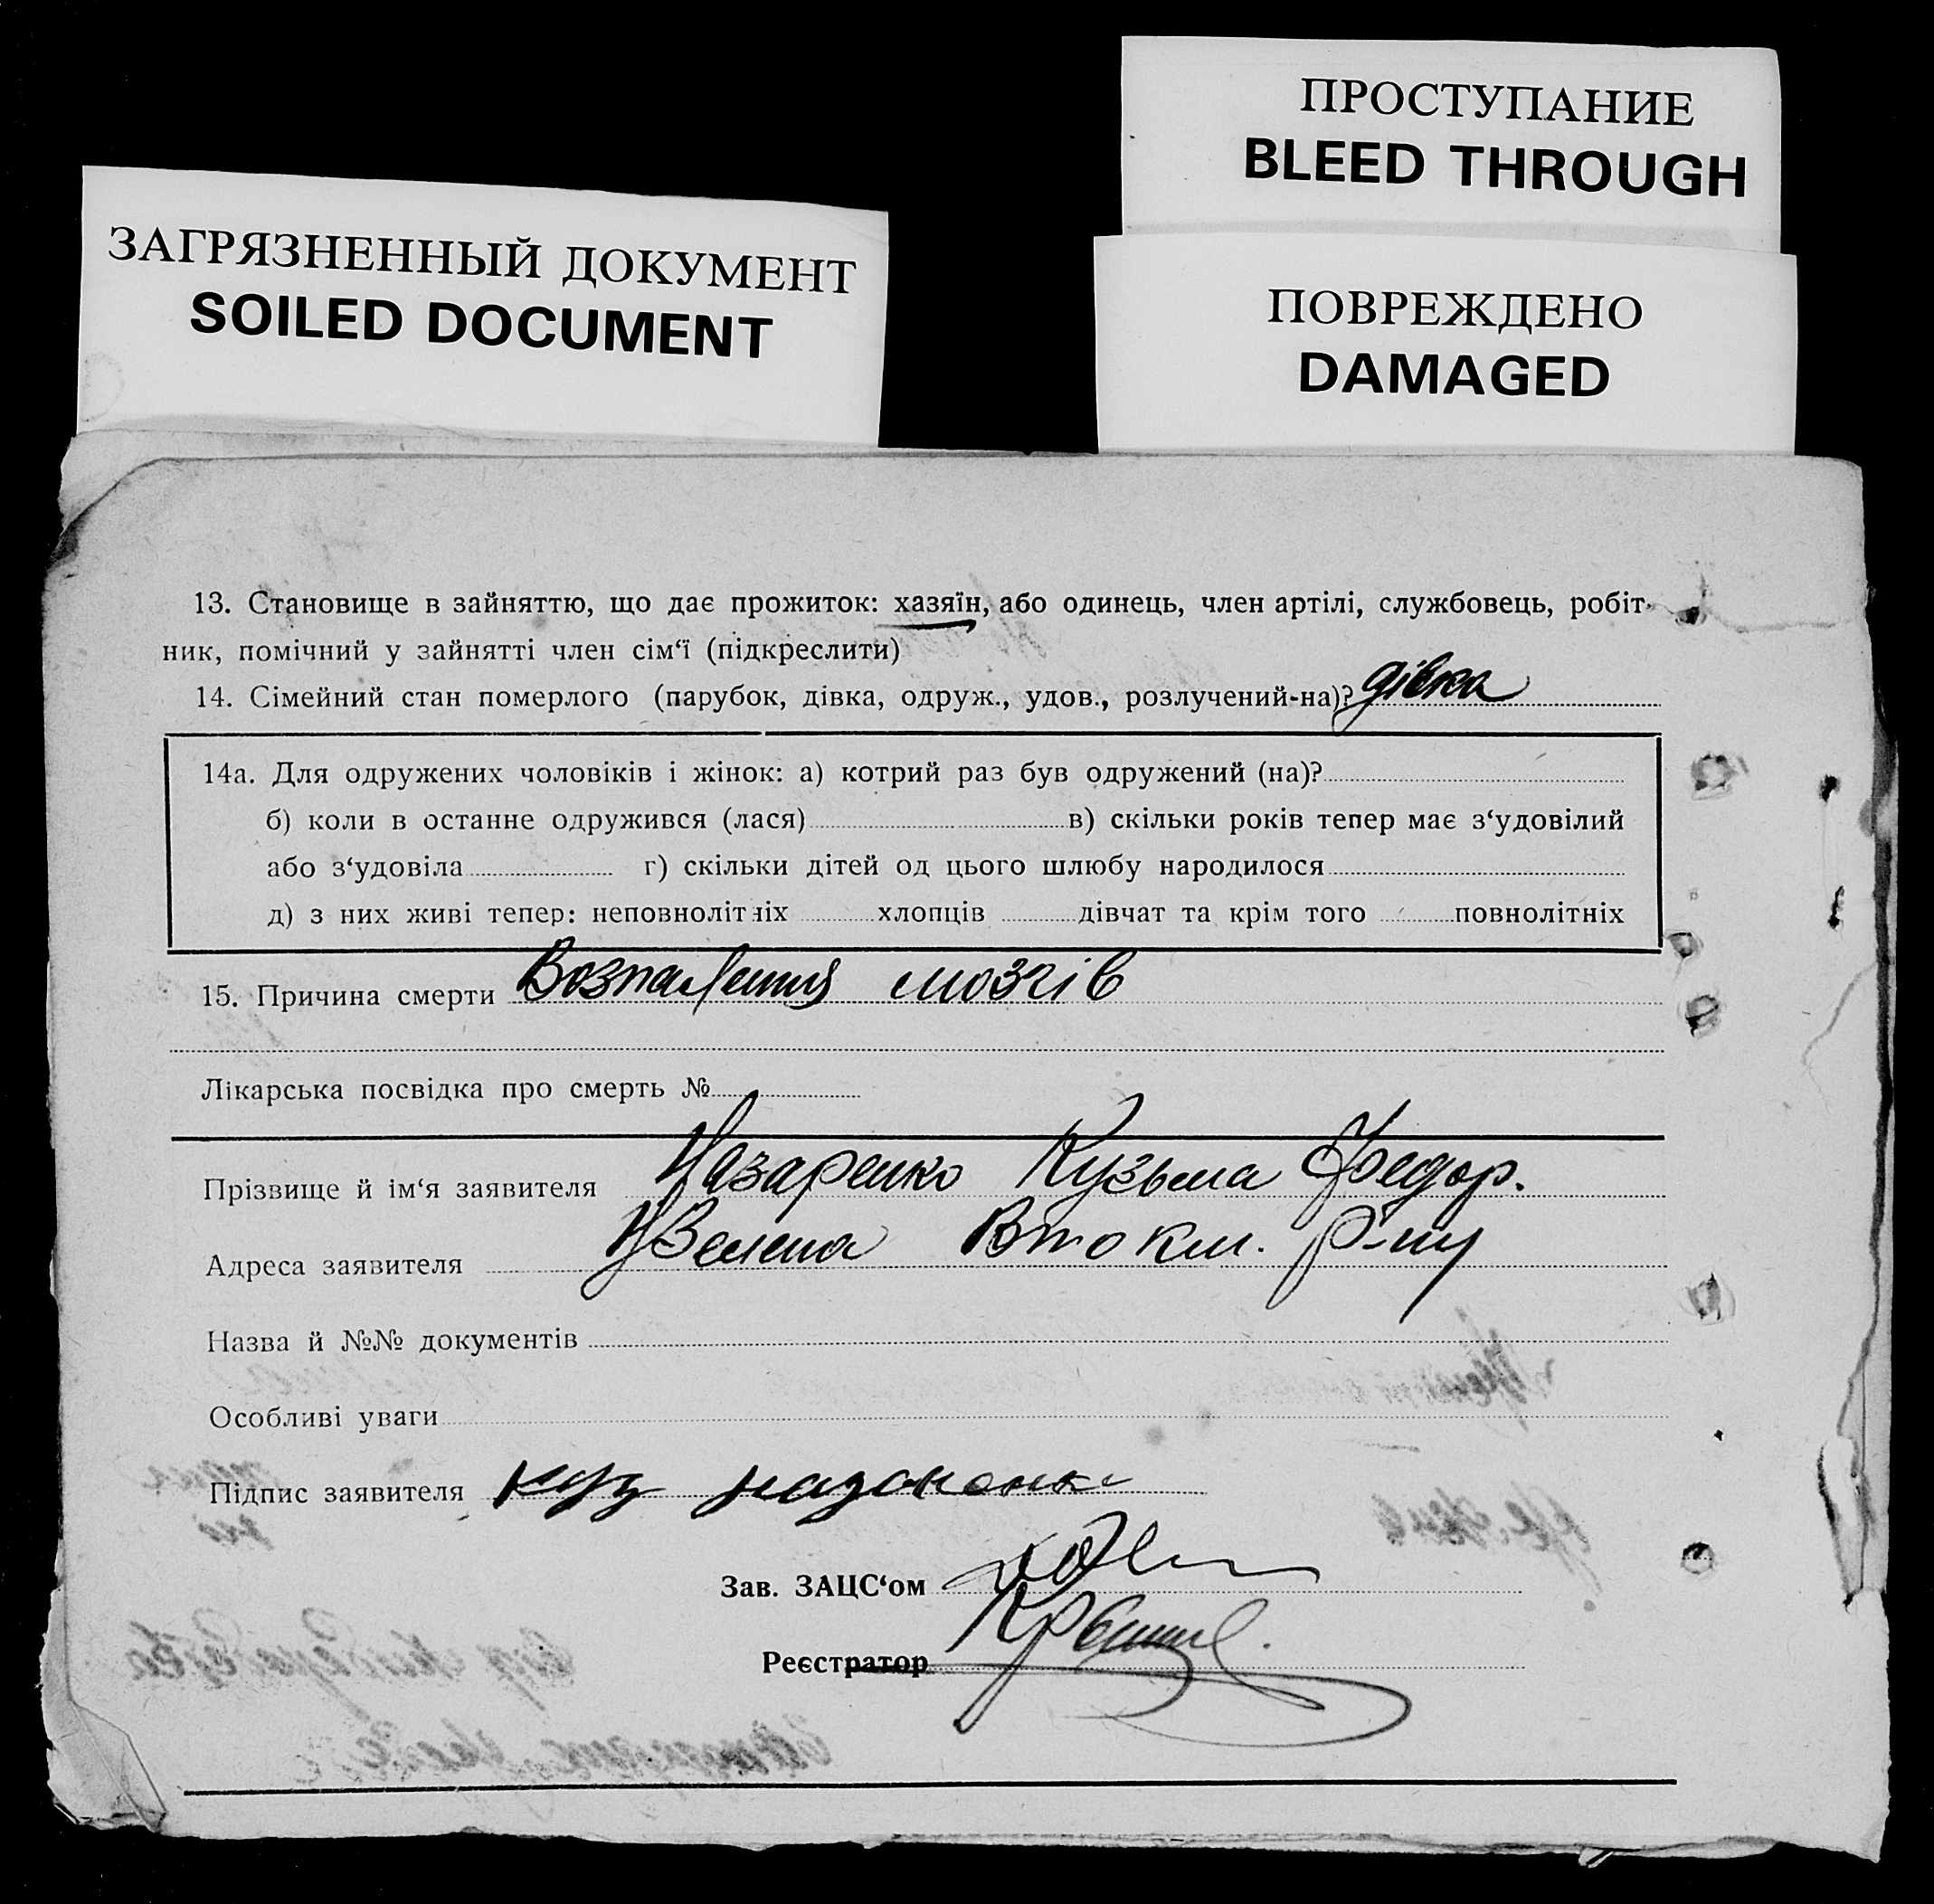 ПРОСТУПАНИЕ
BLEED THROUGH
ЗАГРЯЗНЕННЫЙ ДОКУМЕНТ
SOILED DOCUMENT
ПОВРЕЖДЕНО
DAMAGED
13. Становище в зайняттю, що дає прожиток: хазяїн, або одинець, член артілі, службовець, робіт-
ник, помічний у зайнятті член сім‘ї (підкреслити)
14. Сімейний стан померлого (парубок, дівка, одруж., удов., розлучений-на)? дівка
14а. Для одружених чоловіків і жінок: а) котрий раз був одружений (на)?
б) коли в останне одружився (лася) в) скільки років тепер має з‘удовілий
або з‘удовіла г) скільки дітей од цього шлюбу народилося
д) з них живі тепер: неповнолітніх хлопців дівчат та крім того повнолітніх
15. Причина смерти Возпаления мозгів
Лікарська посвідка про смерть №
Прізвище й ім‘я заявителя Назаренко Кузьма Федор.
Адреса заявителя
Назва й №№ документів
Особливі уваги
Підпис заявителя Куз
Зав. ЗАЦС‘ом
Реєстратор